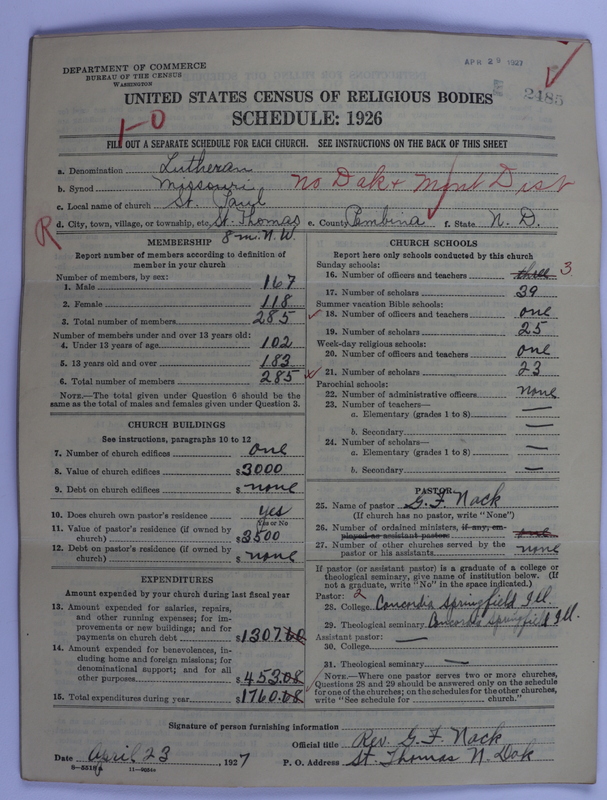 DEPARTMENT OF COMMERCE
BUREAU OF THE CENSUS
WASHINGTON
APR 29 1927
2485
UNITED STATES CENSUS OF RELIGIOUS BODIES
SCHEDULE: 1926
1-0
FILL OUT A SEPARATE SCHEDULE FOR EACH CHURCH. SEE INSTRUCTIONS ON THE BACK OF THIS SHEET
a. Denomination Lutheran
b. Synod Missouri No Dak & Mont Dist
c. Local name of church St. Paul
d. City, town, village, or township, etc. St. Thomas e. County Pembina f. State N. D.
8 m. N.W.
R
MEMBERSHIP
Report number of members according to definition of
member in your church
Number of members, by sex:
1. Male 167
2. Female 118
3. Total number of members 285
Number of members under and over 13 years old:
4. Under 13 years of age 102
5. 13 years old and over 183
6. Total number of members 285
NOTE.—The total given under Question 6 should be the
same as the total of males and females given under Question 3.
CHURCH BUILDINGS
See instructions, paragraphs 10 to 12
7. Number of church edifices one
8. Value of church edifices $3000
9. Debt on church edifices $ none
10. Does church own pastor's residence yes
Yes or No
11. Value of pastor's residence (if owned by
church) $3500
12. Debt on pastor's residence (if owned by
church) $ none
EXPENDITURES
Amount expended by your church during last fiscal year
13. Amount expended for salaries, repairs,
and other running expenses; for im-
provements or new buildings; and for
payments on church debt $1307.60
14. Amount expended for benevolences, in-
cluding home and foreign missions; for
denominational support; and for all
other purposes $453.08
15. Total expenditures during year $1760.68
CHURCH SCHOOLS
Report here only schools conducted by this church
Sunday schools:
16. Number of officers and teachers three 3
17. Number of scholars 39
Summer vacation Bible schools:
18. Number of officers and teachers one
19. Number of scholars 25
Week-day religious schools:
20. Number of officers and teachers one
21. Number of scholars 23
Parochial schools:
22. Number of administrative officers none
23. Number of teachers—
a. Elementary (grades 1 to 8) —
b. Secondary —
24. Number of scholars—
a. Elementary (grades 1 to 8) —
b. Secondary —
PASTOR
25. Name of pastor G. F. Nack
(If church has no pastor, write "None")
26. Number of ordained ministers, if any, em-
ployed as assistant pastors one
27. Number of other churches served by the
pastor or his assistants none
If pastor (or assistant pastor) is a graduate of a college or
theological seminary, give name of institution below. (If
not a graduate, write "No" in the space indicated.)
Pastor: 2
28. College Concordia Springfield Ill
29. Theological seminary Concordia Springfield Ill.
Assistant pastor: —
30. College
31. Theological seminary —
NOTE.—Where one pastor serves two or more churches,
Questions 28 and 29 should be answered only on the schedule
for one of the churches; on the schedules for the other churches,
write "See schedule for church."
Signature of person furnishing information
Official title Rev. G. F. Nack
Date April 23, 1927 P. O. Address St. Thomas N. Dak